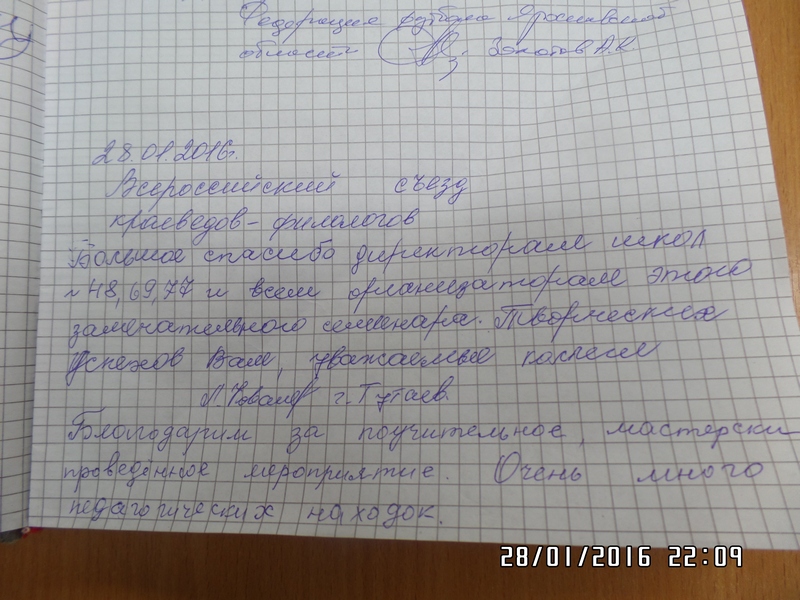 Федерация футбола Ярославской
области Золотов А.В.
28.01.2016г.
Всероссийский съезд
краеведов-филологов
Большое спасибо директорам школ
№48,69,77 и всем организаторам этого
замечательного семенара. Творческих
успехов Вам, уважаемые коллеги
г. Тутаев.
Благодарим за поучительное, мастерски
проведённое мероприятие. Очень много
педагогических находок.
28/01/2016 22:09